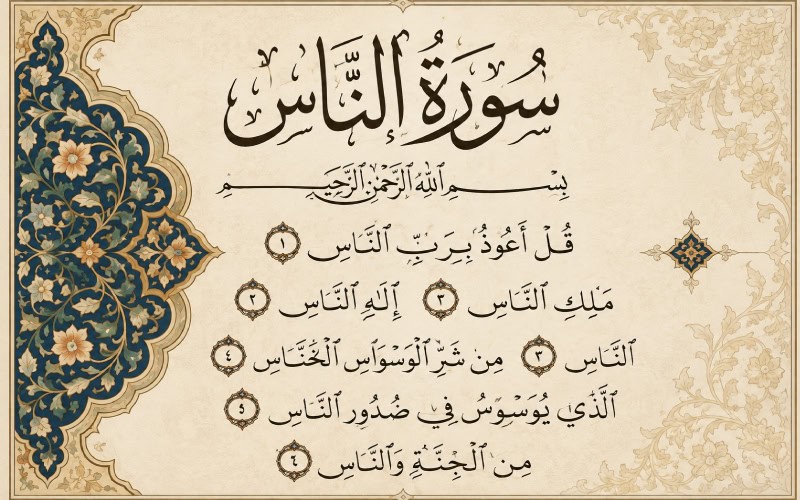 سُورَةُ النَّاس
بِسْمِ ٱللَّهِ ٱلرَّحْمَٰنِ ٱلرَّحِيمِ
قُلْ أَعُوذُ بِرَبِّ ٱلنَّاسِ ١
مَلِكِ ٱلنَّاسِ ٣ إِلَٰهِ ٱلنَّاسِ ٢
ٱلنَّاسِ ٣ مِن شَرِّ ٱلْوَسْوَاسِ ٱلْخَنَّاسِ ٤
ٱلَّذِي يُوَسْوِسُ فِي صُدُورِ ٱلنَّاسِ ٥
مِنَ ٱلْجِنَّةِ وَٱلنَّاسِ ٦